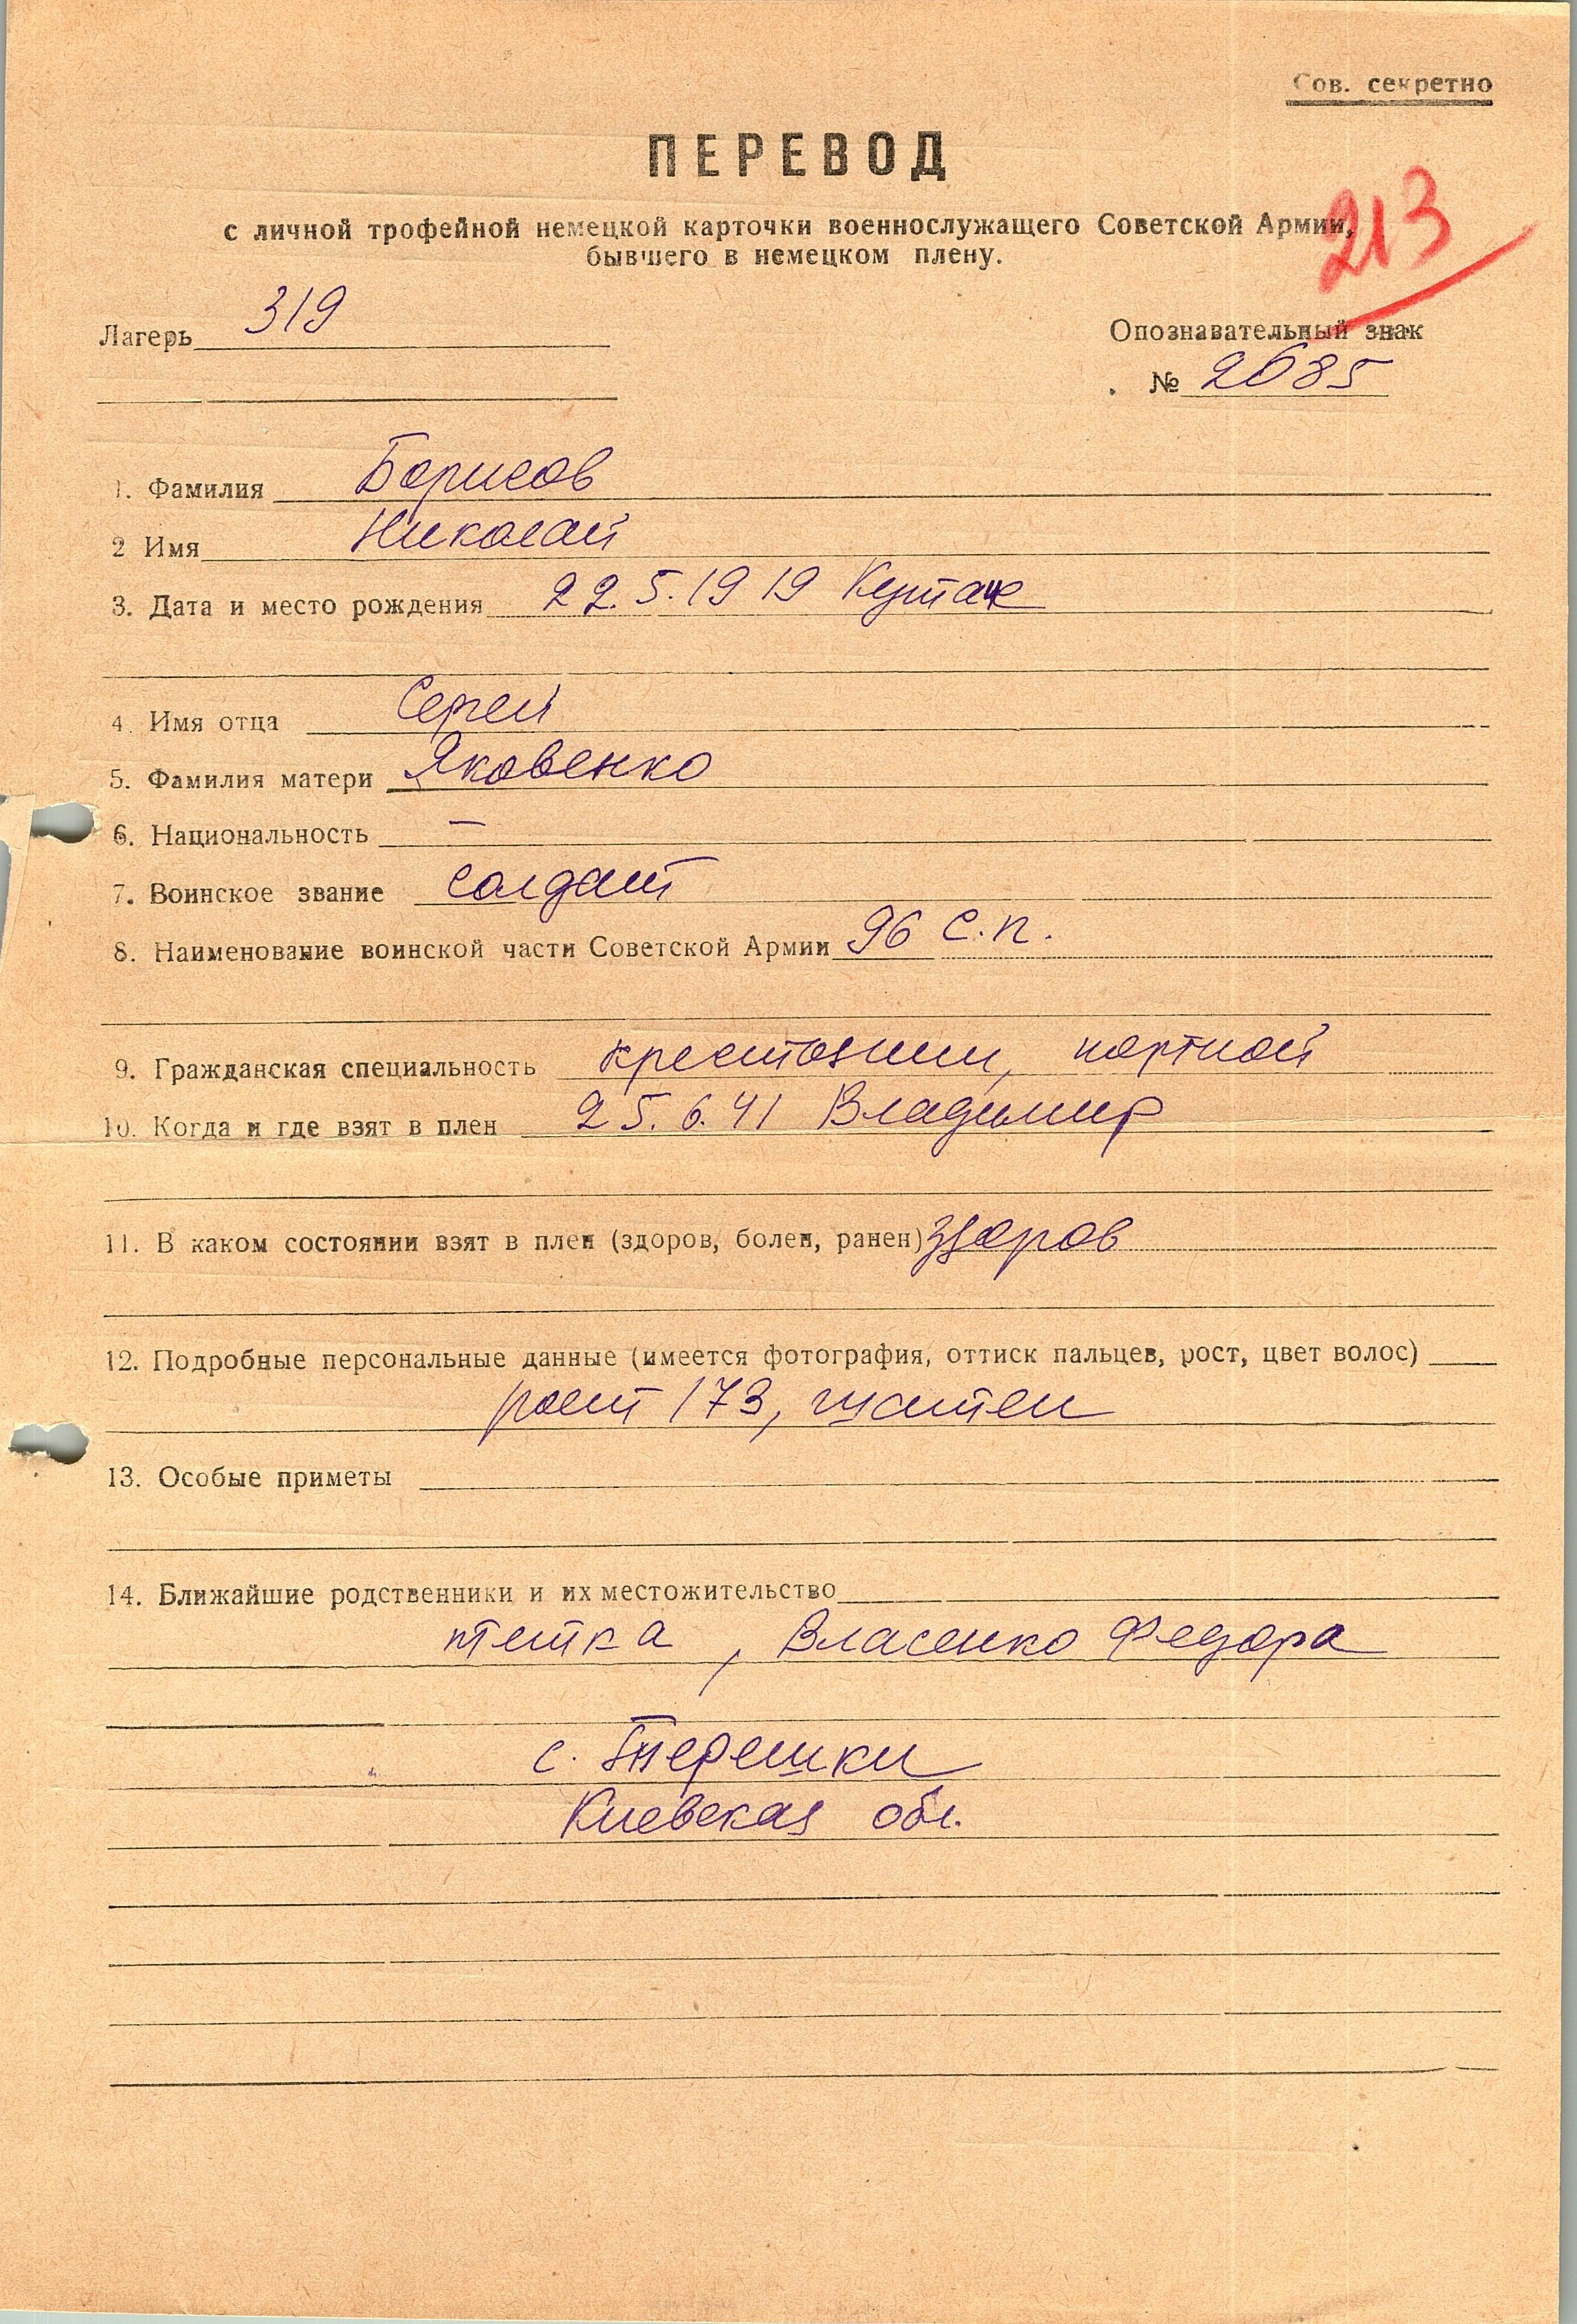 Сов. секретно
ПЕРЕВОД
с личной трофейной немецкой карточки военнослужащего Советской Армии,
бывшего в немецком плену.
213
Лагерь 319
Опознавательный знак
№ 2685
1. Фамилия Борисов
2 Имя Николай
3. Дата и место рождения 22.5.1919
4. Имя отца Сергей
5. Фамилия матери Яковенко
6. Национальность —
7. Воинское звание солдат
8. Наименование воинской части Советской Армии 96 с.п.
9. Гражданская специальность крестьянин, портной
10. Когда и где взят в плен 25.6.41 Владимир
11. В каком состоянии взят в плен (здоров, болен, ранен) здоров
12. Подробные персональные данные (имеется фотография, оттиск пальцев, рост, цвет волос)
рост 173, шатен
13. Особые приметы
14. Ближайшие родственники и их местожительство
тетка, Власенко Федора
с. Терешки
Киевская обл.